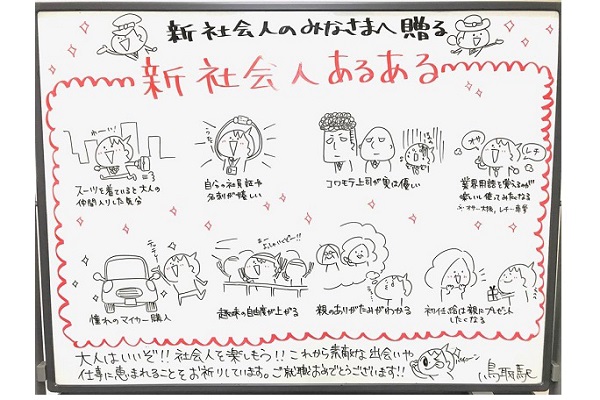 新社会人のみなさまへ贈る
新社会人あるある
わーい!
スーツを着ていると大人の
仲間入りした気分
自分の社員証や
名刺が嬉しい
コワモテ上司が実は優しい
オサ
レチ
業界用語を覚えるのが
楽しいし使ってみたくなる
憧れのマイカー購入
趣味の自由度が上がる
親のありがたみがわかる
初任給は親にプレゼント
したくなる
大人はいいぞ!!社会人を楽しもう!!これから素敵な出会いや
仕事に恵まれることをお祈りしています。ご就職おめでとうございます!!
鳥取駅